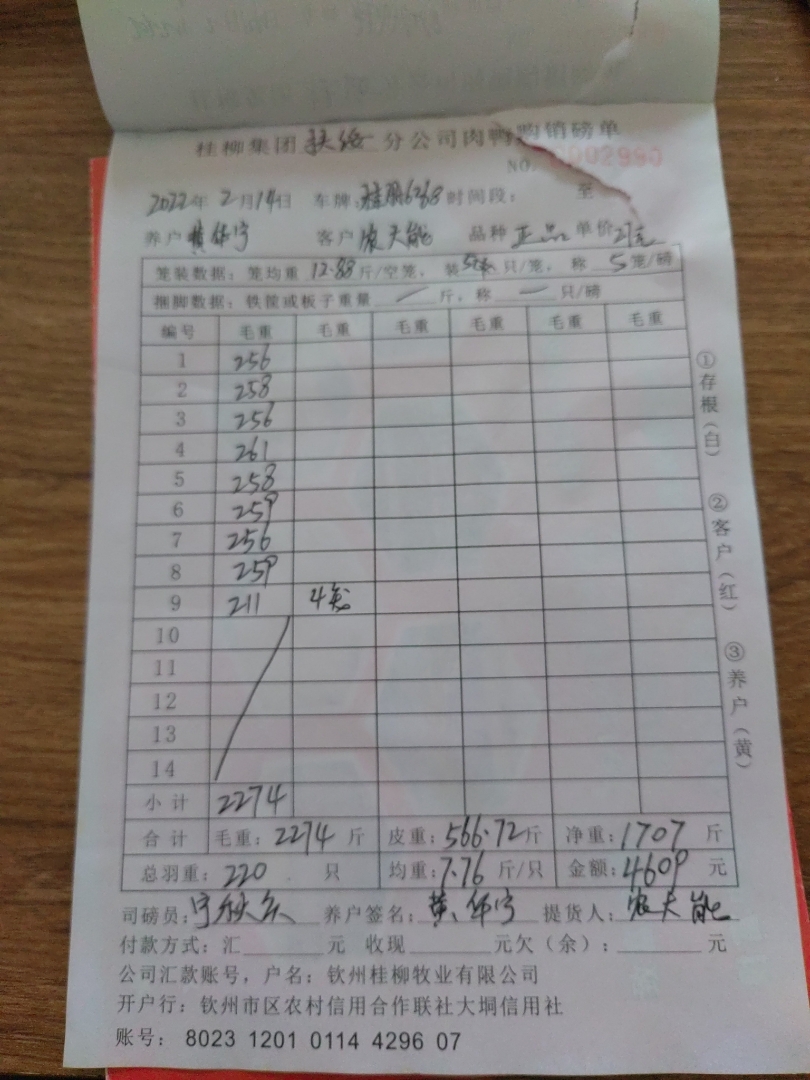 桂柳集团扶绥分公司肉鸭购销磅单
NO. 0002990
2022年2月14日 车牌: 时间段: 至
养户黄华宁 客户农天能 品种正品 单价
笼装数据: 笼均重 12.88 斤/空笼, 装 5 只/笼, 称 5 笼/磅
捆脚数据: 铁筐或板子重量 / 斤, 称 — 只/磅
编号 毛重 毛重 毛重 毛重 毛重 毛重
1 256
2 258
3 256
4 261
5 258
6 259
7 256
8 259
9 211 4笼
10
11
12
13
14
小计 2274
合计 毛重: 2274 斤 皮重: 566.72 斤 净重: 1707 斤
总羽重: 220 只 均重: 7.76 斤/只 金额: 4609 元
司磅员: 养户签名: 黄华宁 提货人: 农天能
付款方式: 汇 元 收现 元欠(余): 元
公司汇款账号, 户名: 钦州桂柳牧业有限公司
开户行: 钦州市区农村信用合作联社大垌信用社
账号: 8023 1201 0114 4296 07
①存根(白)
②客户(红)
③养户(黄)